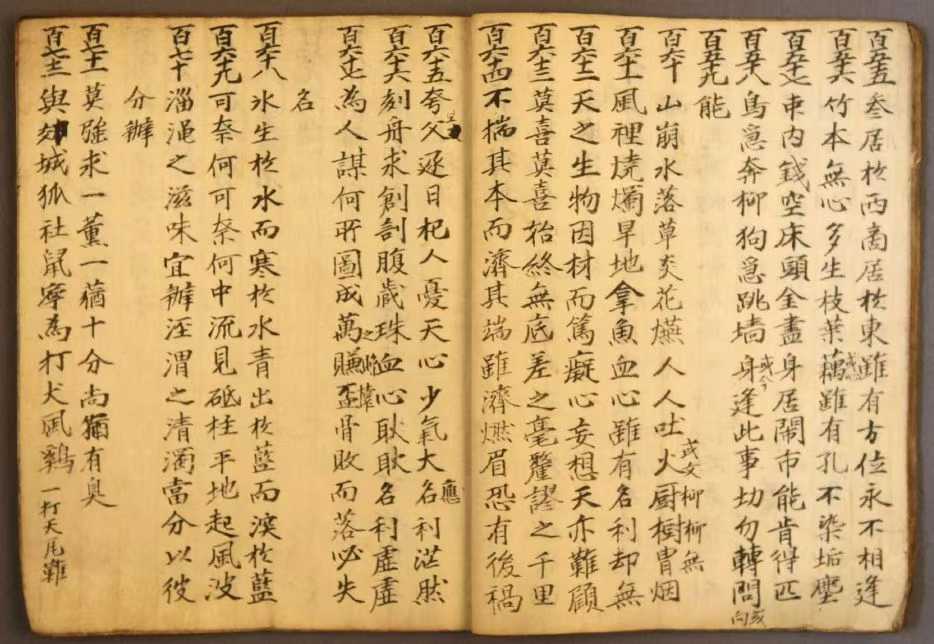 百五十五 叁居於西商居於東雖有方位永不相逢
百五十六 竹本無心多生枝葉藕雖有孔不染垢塵
百五十七 串內錢空床頭金盡身居鬧市能肯得匹
百五十八 鳥急奔柳狗急跳墙身逢此事切勿轉問
百五十九 能
百六十 山崩水落草炎花燕人人吐火厨樹冒烟
百六十一 風裡燒爛旱地拿魚血心雖有名利却無
百六十二 天之生物因材而篤癡心妄想天亦難顧
百六十三 莫喜莫喜始終無底差之毫釐謬之千里
百六十四 不揣其本而濟其端雖濟燃眉恐有後禍
百六十五 夸父逐日杞人憂天心少氣大名利茫然
百六十六 刻舟求劍剖腹藏珠血心耿耿名利虛虛
百六十七 為人謀何所圖成萬賺盃骨敗而落必失
名
百六十八 氷生於水而寒於水青出於藍而深於藍
百六十九 可奈何可奈何中流見砥柱平地起風波
百七十 淄渑之滋味宜辦涇渭之清濁當分以彼
分辦
百七十一 莫強求一薰一蕕十分尚猶有臭
百七十二 與城狐社鼠寧為打犬風鷄